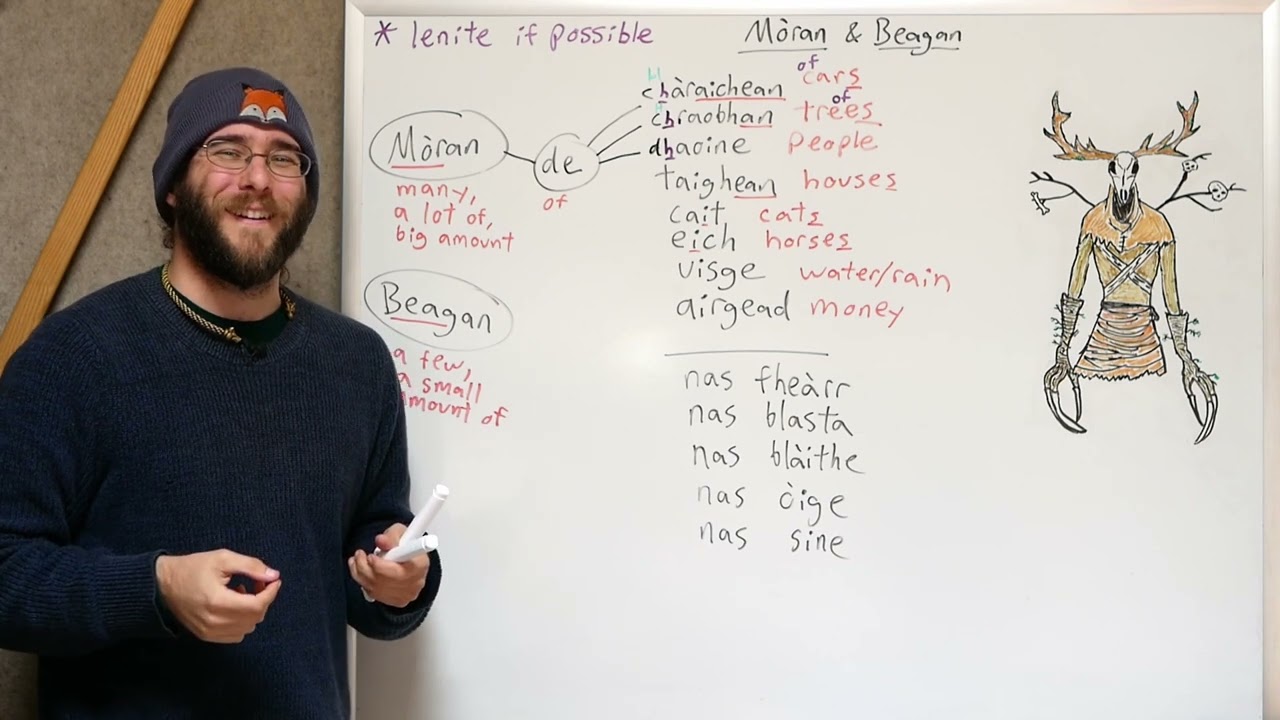 * lenite if possible
Mòran & Beagan
chàraichean of cars
chraobhan of trees
dhaoine people
taighean houses
cait cats
eich horses
visge water/rain
airgead money
Mòran
de
many,
a lot of,
big amount
of
Beagan
a few,
a small
amount of
nas fheàrr
nas blasta
nas blàithe
nas òige
nas sine